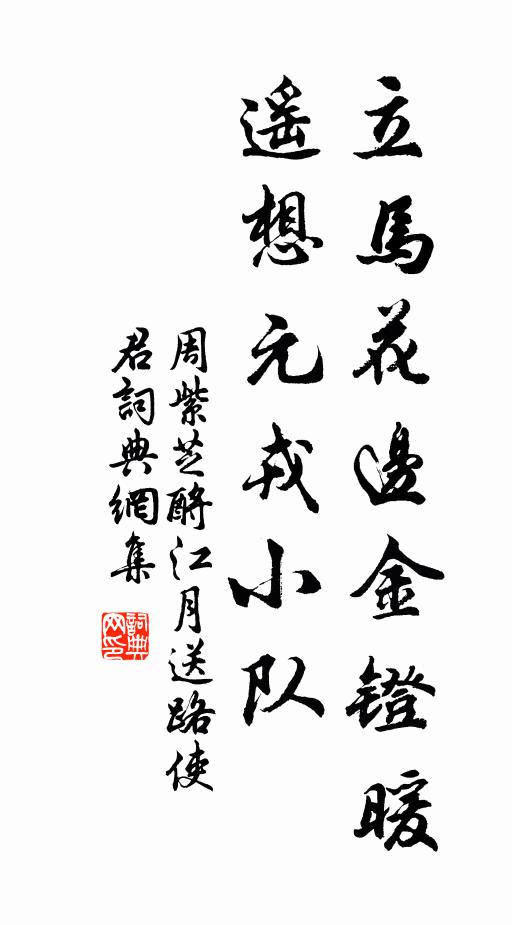 立馬花邊金鐙暖
遥想元戎小队
周紫芝酹江月送路使
君詞典網集
詞典
网印